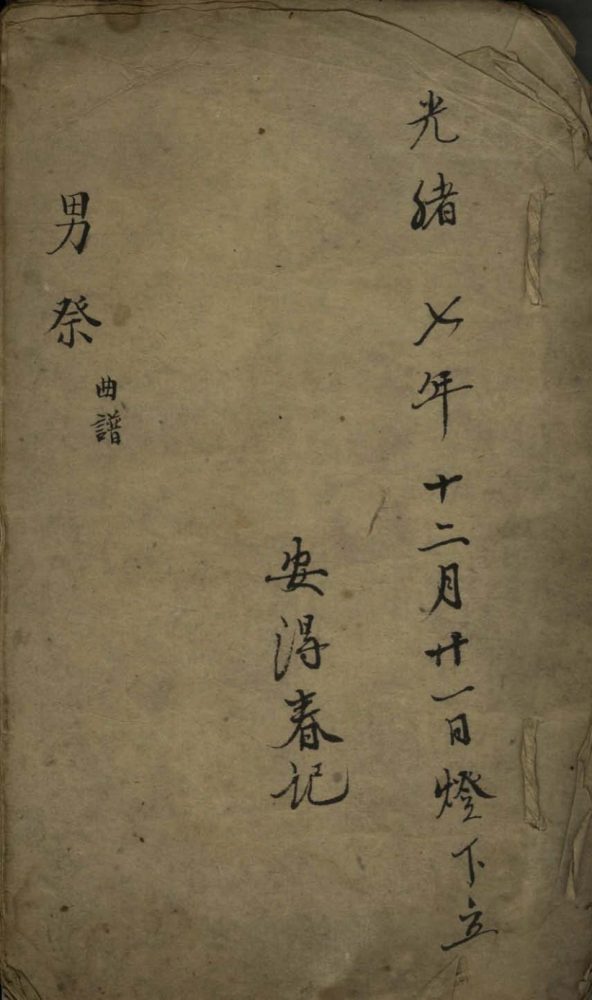 光緒七年十二月廿一日燈下立
安得春记
男祭
曲譜